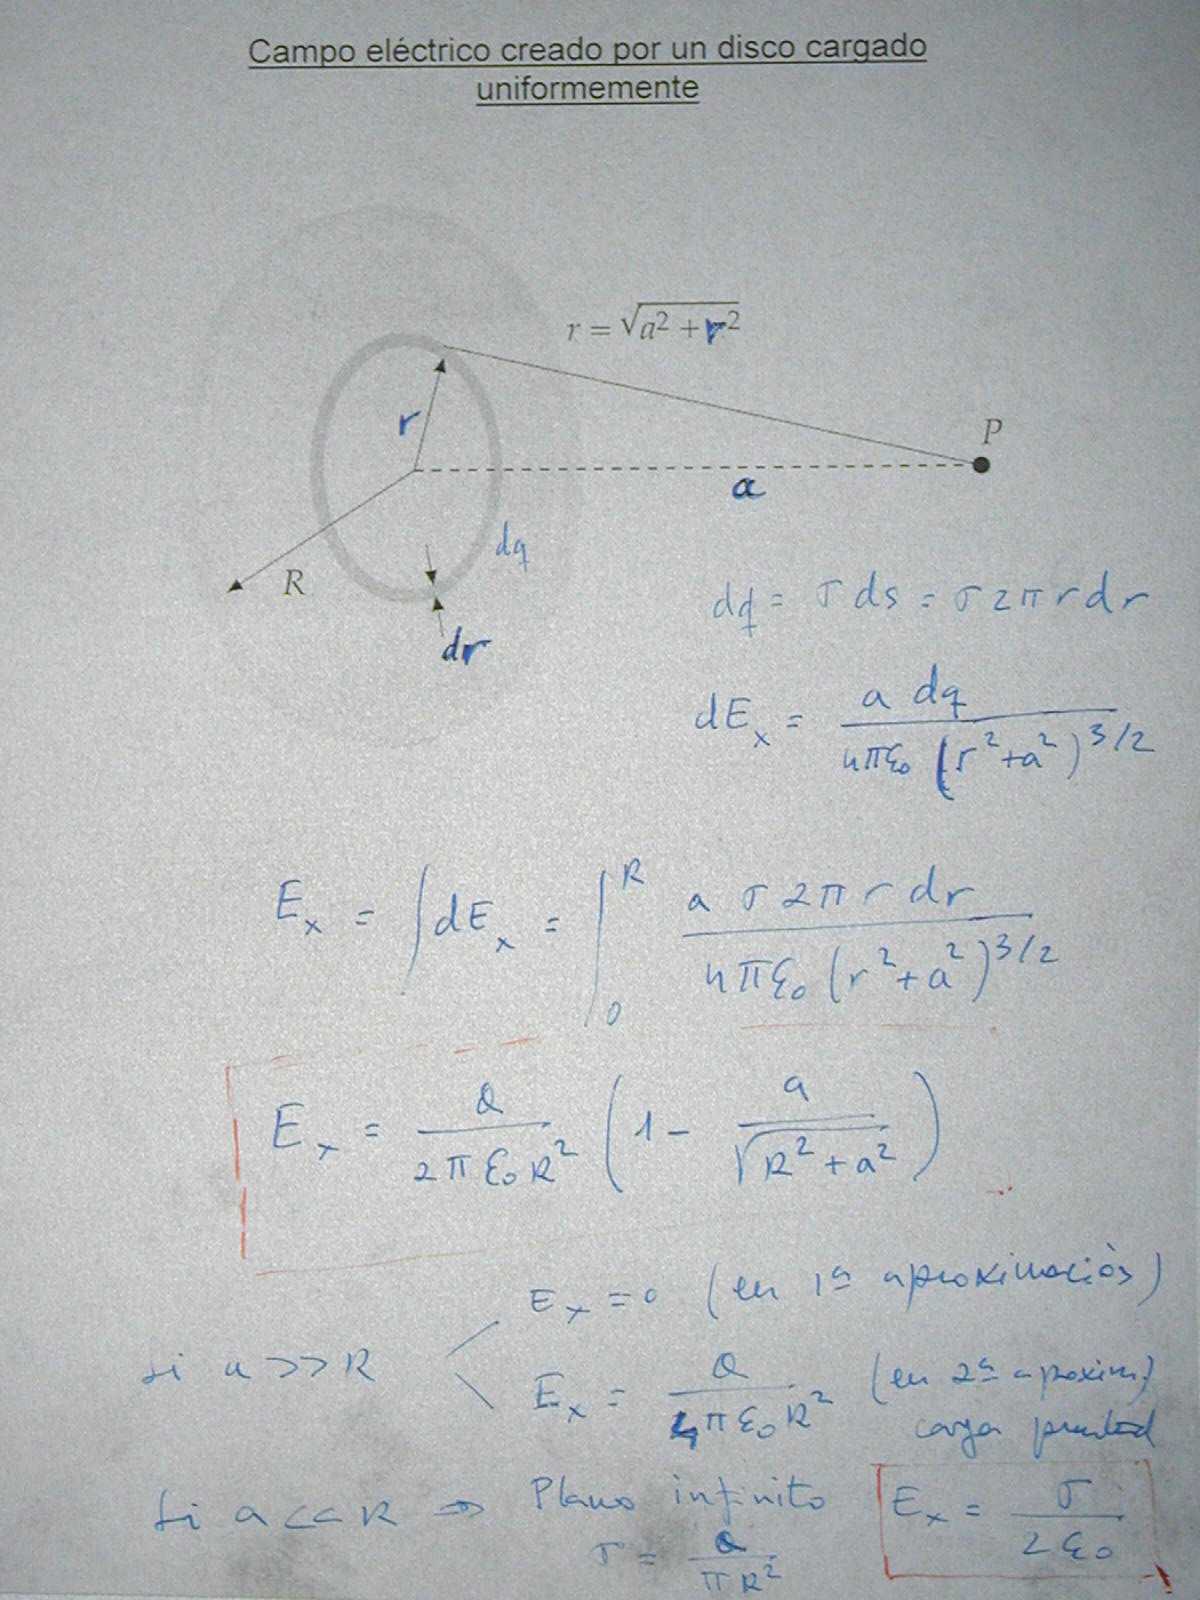 Campo eléctrico creado por un disco cargado
uniformemente
r = √(a² + r²)
P
r
a
dq
R
dr
dq = σ ds = σ 2π r dr
dEx = a dq / 4πε₀ (r² + a²)^3/2
Ex = ∫ dEx = ∫₀^R a σ 2π r dr / 4πε₀ (r² + a²)^3/2
Ex = Q / 2π ε₀ R² (1 - a / √(R² + a²))
Si a >> R
Ex = 0 (en 1ª aproximación)
Ex = Q / 4π ε₀ R² (en 2ª aproxim)
carga puntual
Si a << R ⇒ Plano infinito
σ = Q / π R²
Ex = σ / 2 ε₀